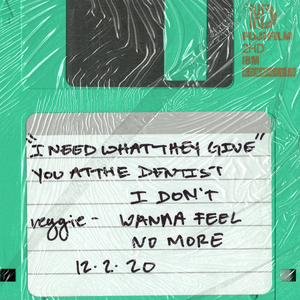 FUJIFILM
2HD
IBM
"I NEED WHAT THEY GIVE"
YOU AT THE DENTIST
I DON'T
reggie - WANNA FEEL
NO MORE
12.2.20